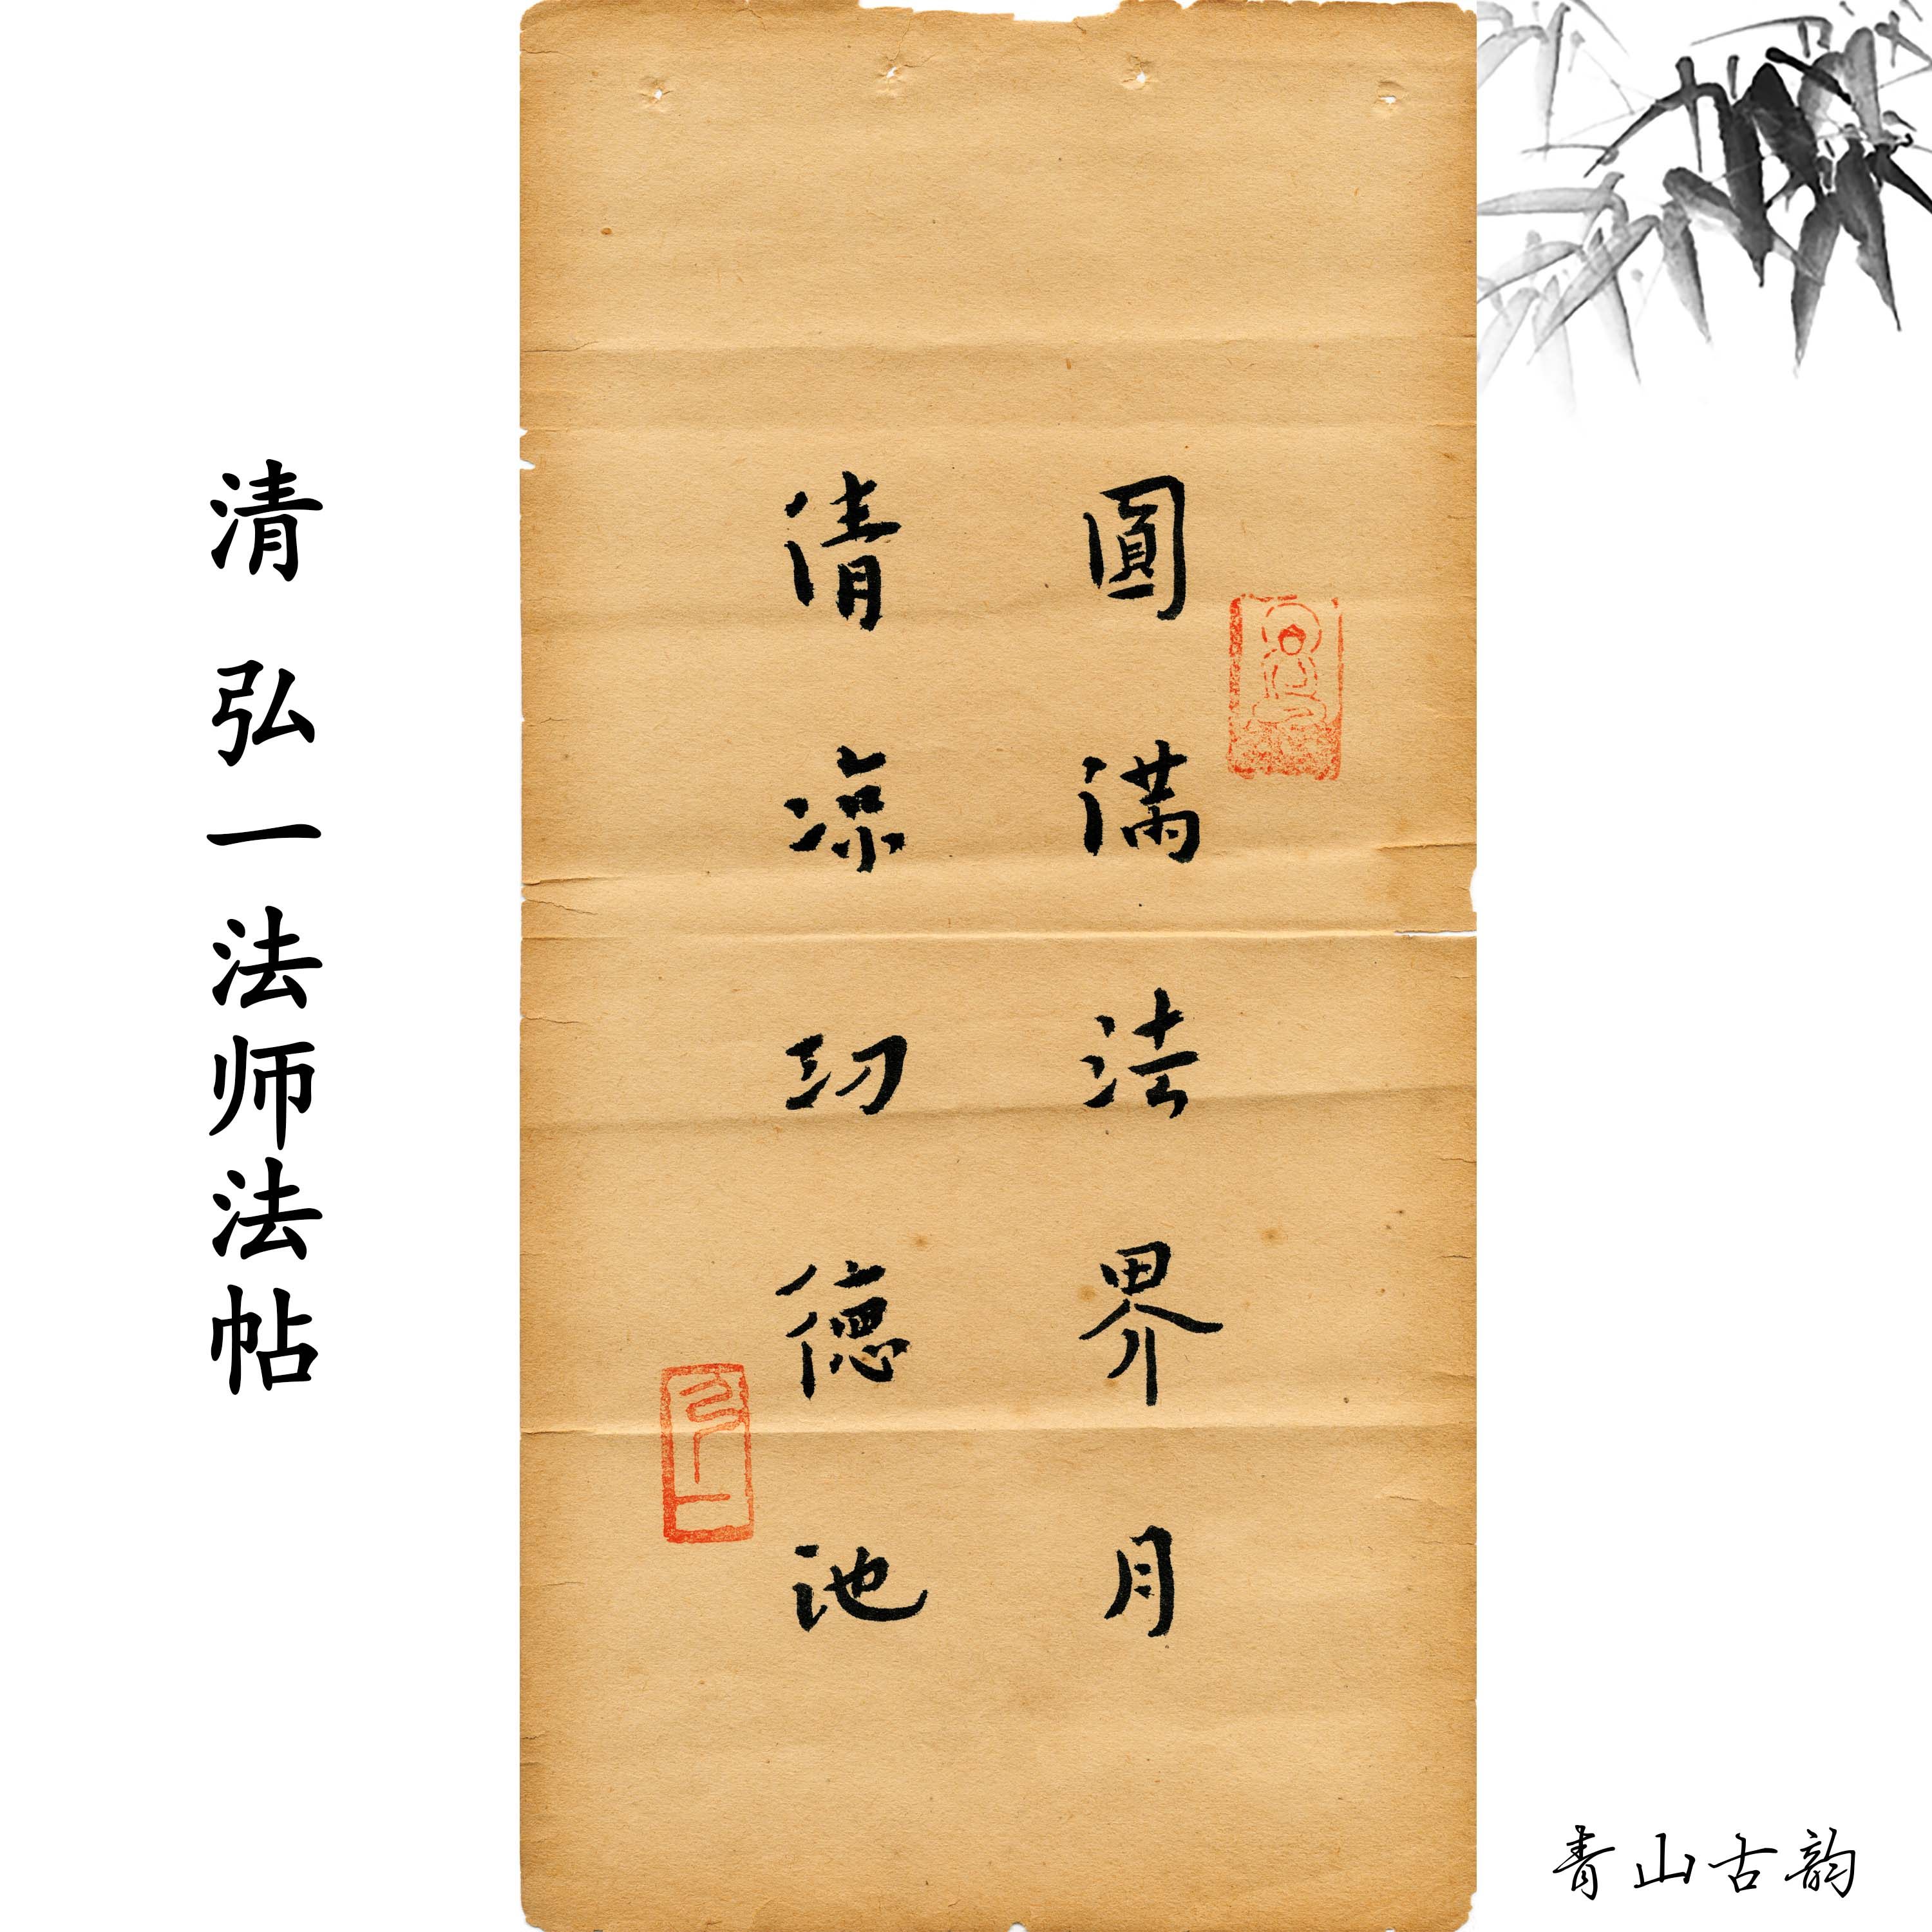 圓滿法界月
清凉功德池
弘一
清 弘一法师法帖
青山古韵